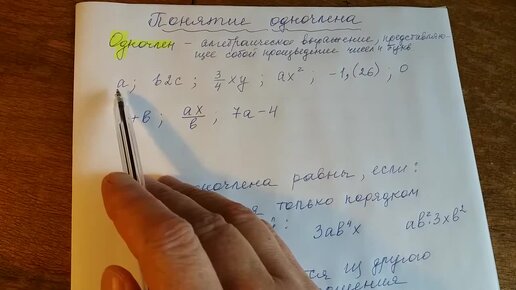 Понятие одночлена
Одночлен – алгебраическое выражение, представляю-
щее собой произведение чисел и букв
a; b2c; 3/4 xy; ax²; -1,(26); 0
+b; ax/b; 7a-4
равны, если:
только порядком
3ab⁴x ab²·3xb²
из другого